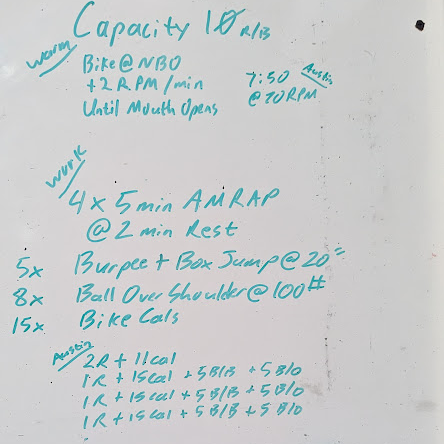 Capacity 10 R/B
Warm
Bike @ NBO
+2 RPM/min
Until Mouth Opens
7:50 Austin
@ 70 RPM
Work
4 x 5 min AMRAP
@ 2 min Rest
5x Burpee + Box Jump @ 20"
8x Ball Over Shoulder @ 100#
15x Bike Cals
Austin
2R + 11cal
1R + 15cal + 5 B/B + 5 B/O
1R + 15cal + 5 B/B + 5 B/O
1R + 15cal + 5 B/B + 5 B/O